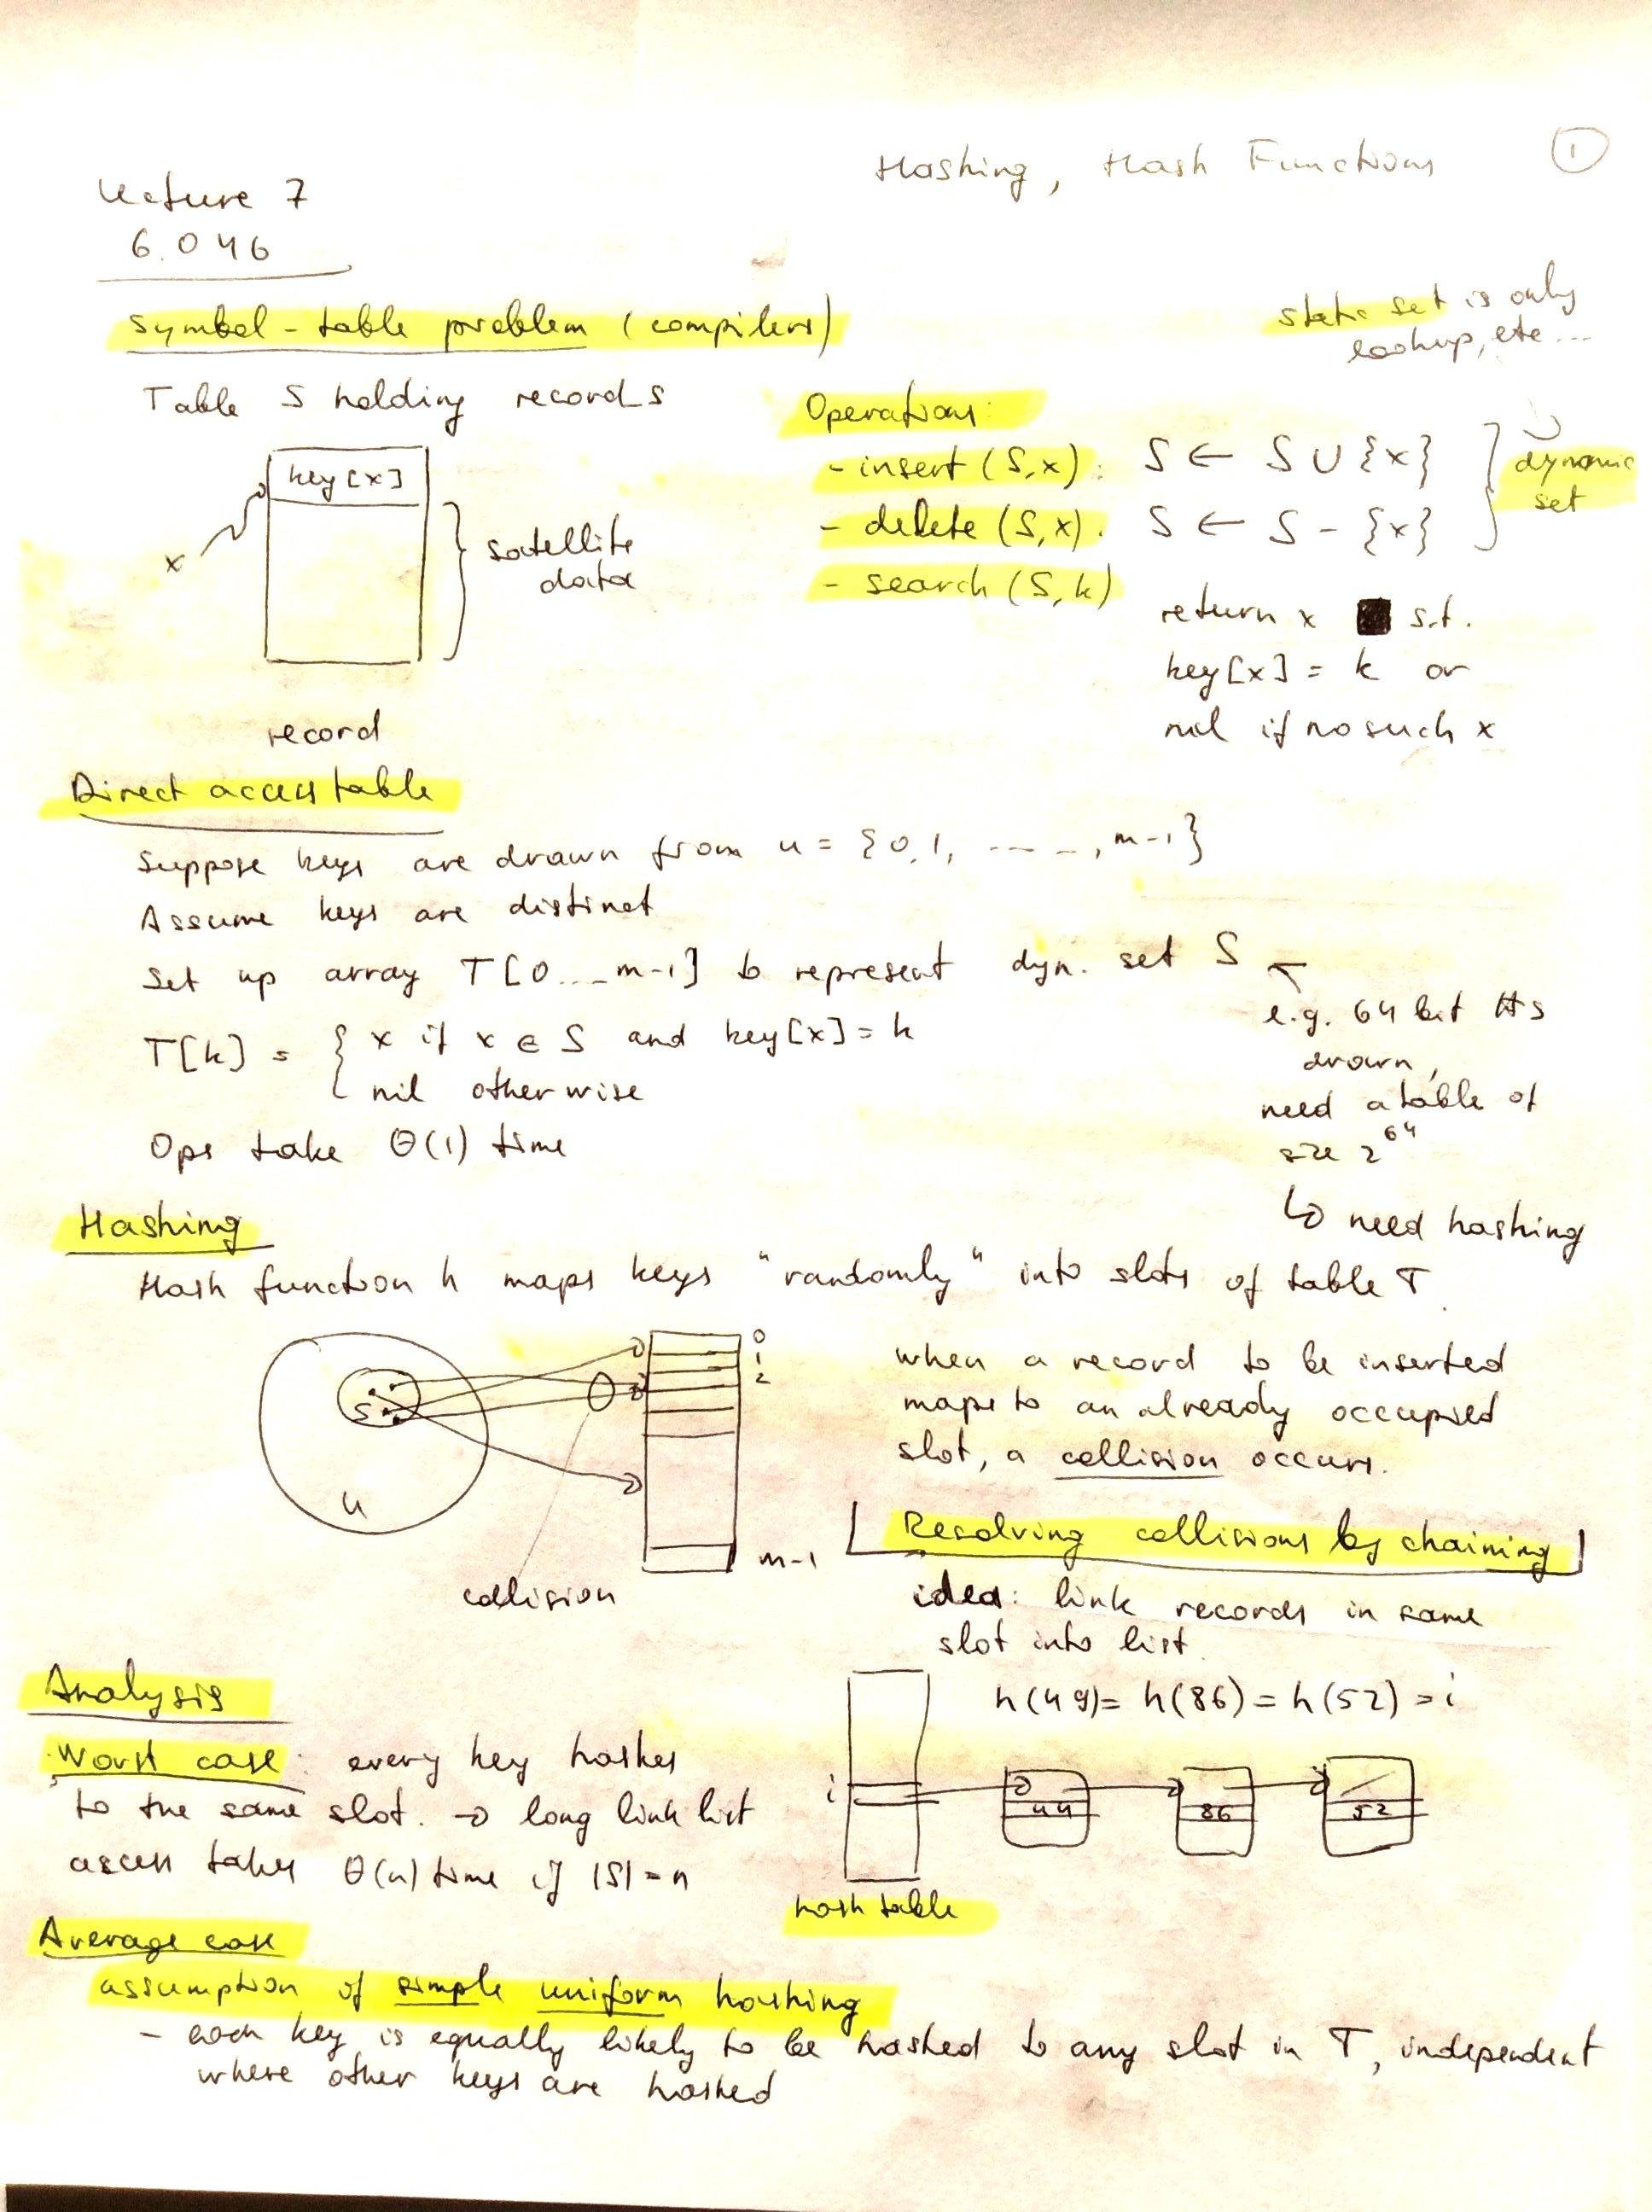 Hashing, Hash Functions
1
Lecture 7
6.046
Symbol-table problem (compilers)
static set is only
lookup, etc...
Table S holding records
key[x]
x
satellite
data
record
Operations:
- insert (S,x): S ← S ∪ {x}
- delete (S,x). S ← S - {x}
dynamic
set
- search (S,k)
return x s.t.
key[x] = k or
nil if no such x
Direct access table
Suppose keys are drawn from u = {0,1, ----, m-1}
Assume keys are distinct
Set up array T[0...m-1] to represent dyn. set S
T[k] = { x if x ∈ S and key[x] = k
nil otherwise
Ops take Θ(1) time
e.g. 64 bit #s
drawn,
need a table of
size 2^64
↳ need hashing
Hashing
Hash function h maps keys "randomly" into slots of table T.
S
u
0
1
2
m-1
collision
when a record to be inserted
maps to an already occupied
slot, a collision occurs.
Resolving collisions by chaining
idea: link records in same
slot into list.
h(49) = h(86) = h(52) = i
i
49
86
52
hash table
Analysis
Worst case: every key hashes
to the same slot. → long link list
access takes Θ(n) time if |S| = n
Average case
assumption of simple uniform hashing
- each key is equally likely to be hashed to any slot in T, independent
where other keys are hashed